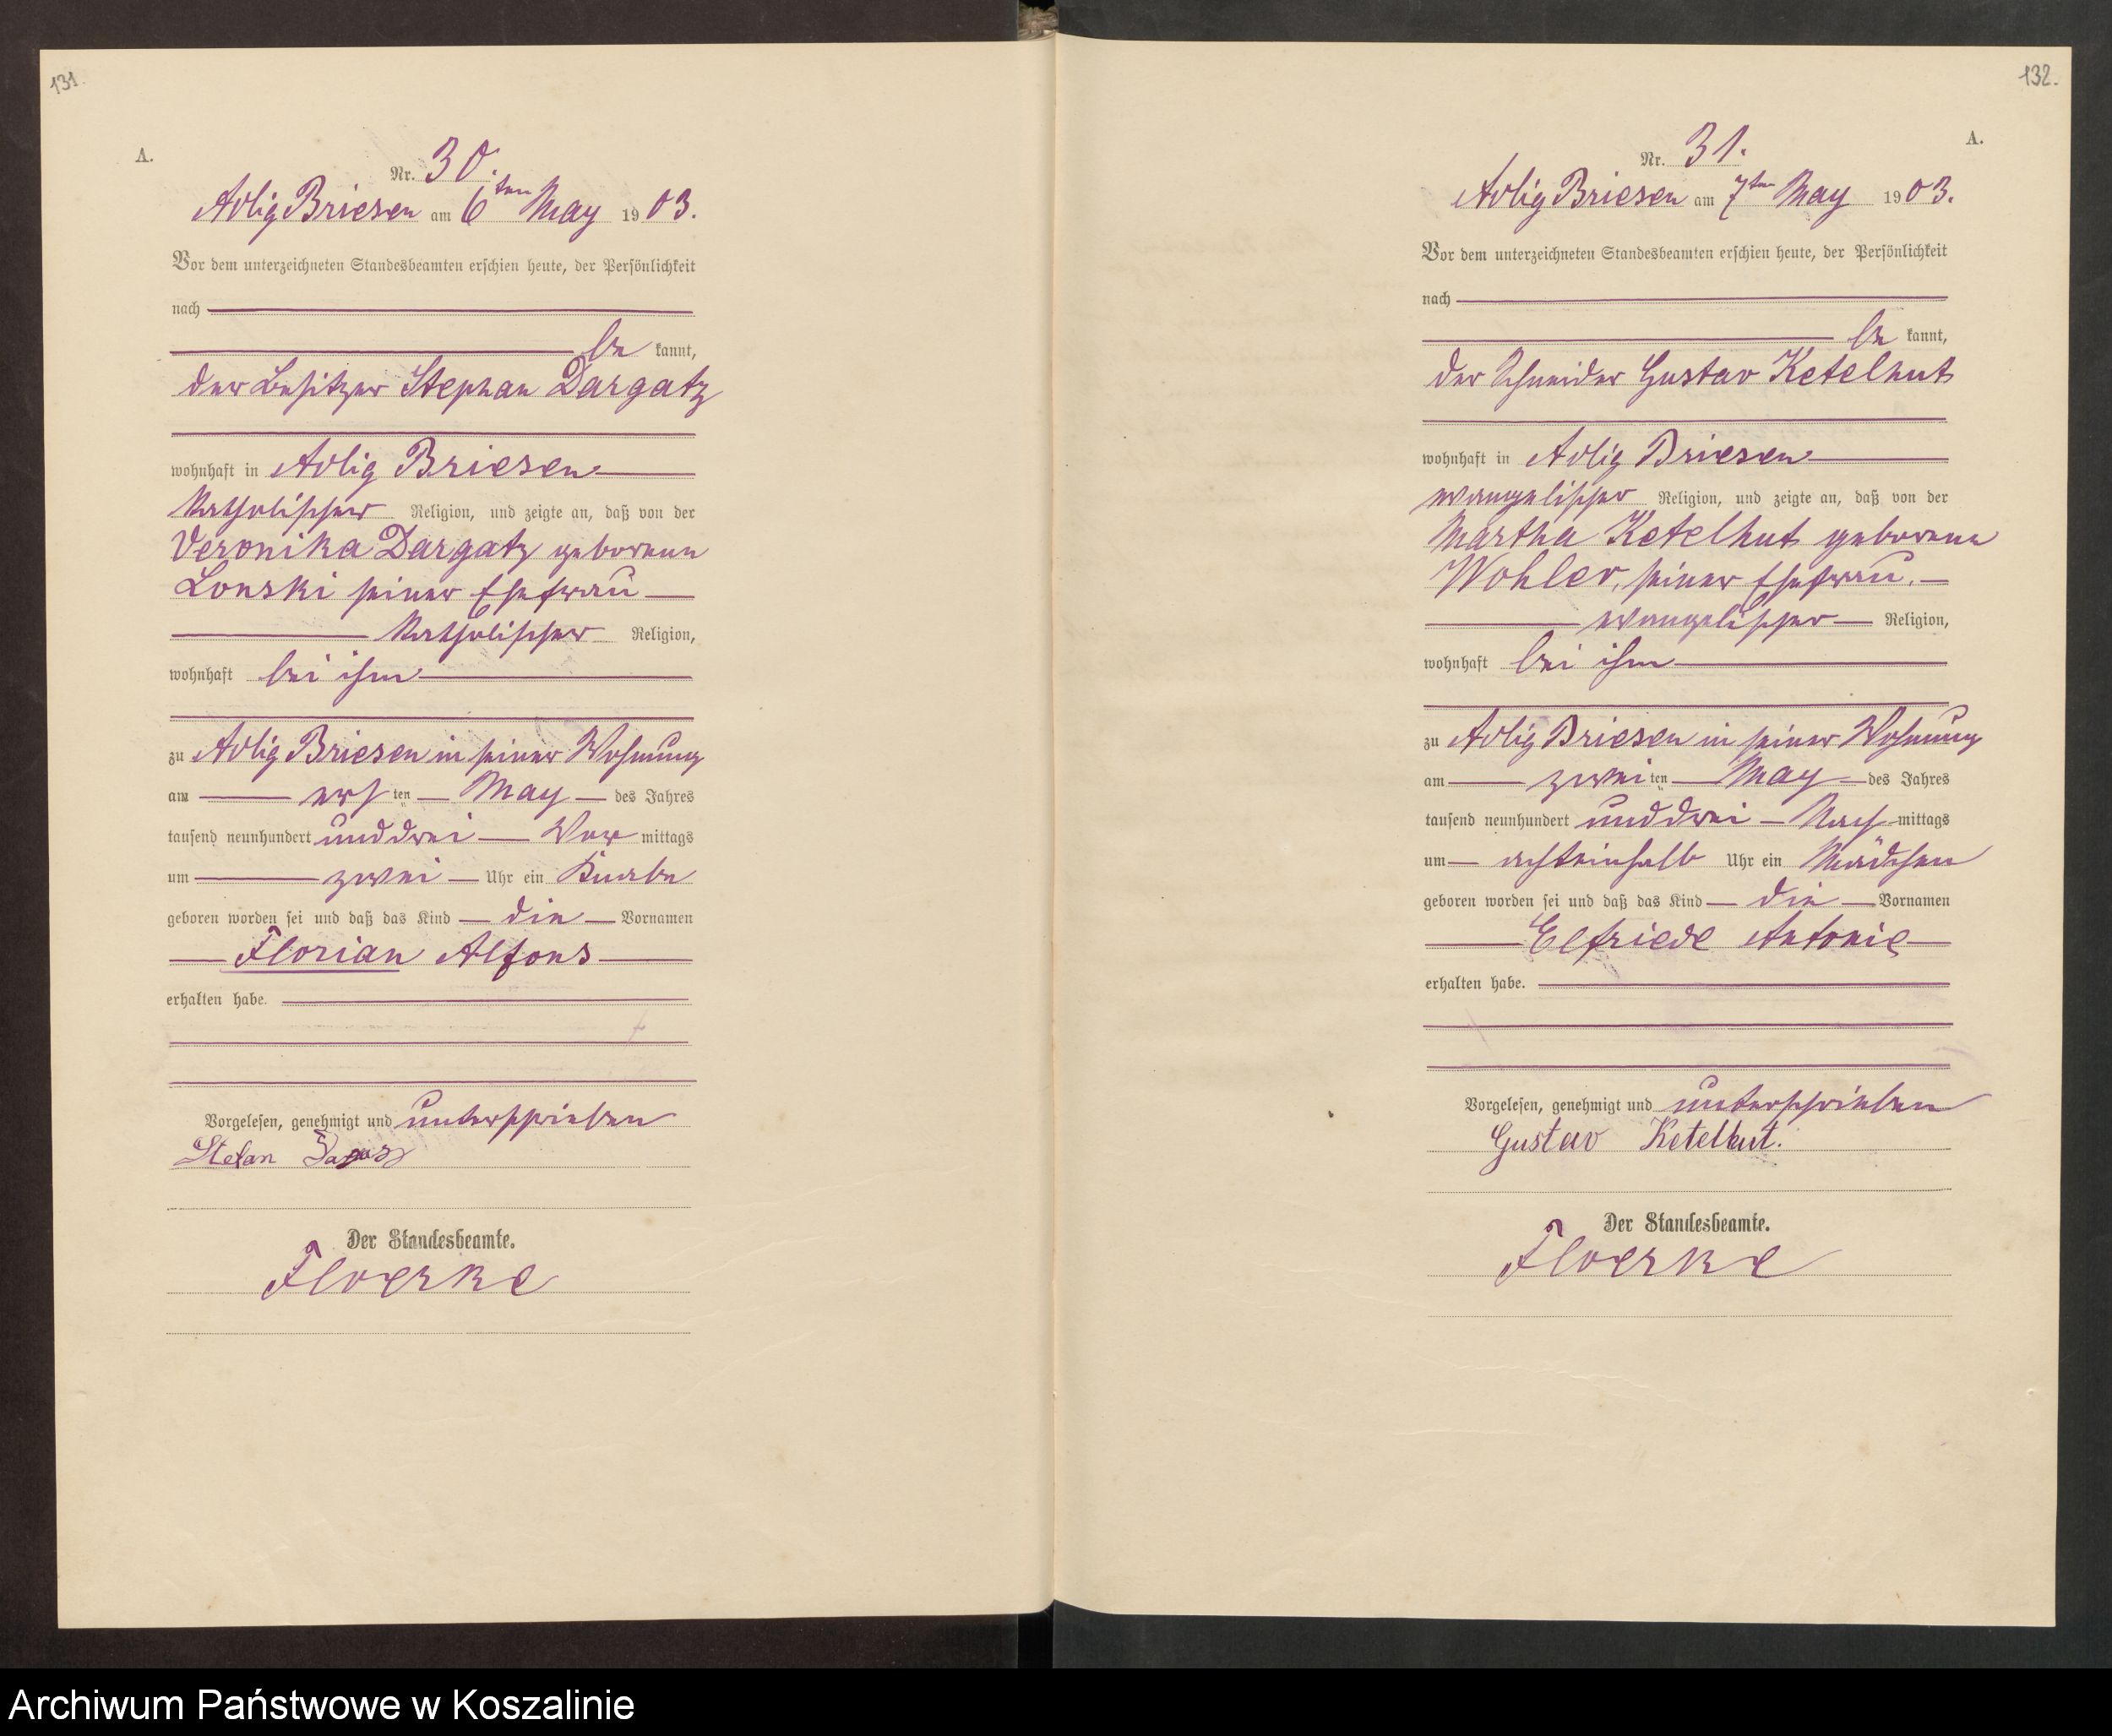 131.
A.
Nr. 30.
Adlig Briesen am 6ten May 1903.
Vor dem unterzeichneten Standesbeamten erschien heute, der Persönlichkeit
nach
be kannt,
der Besitzer Stephan Dargatz
wohnhaft in Adlig Briesen
katholischer Religion, und zeigte an, daß von der
Veronika Dargatz geborenen
Lonski seiner Ehefrau
katholischer Religion,
wohnhaft bei ihm
zu Adlig Briesen in seiner Wohnung
am ersten May des Jahres
tausend neunhundert und drei Vor mittags
um zwei Uhr ein Knabe
geboren worden sei und daß das Kind die Vornamen
Florian Alfons
erhalten habe.
Vorgelesen, genehmigt und unterschrieben
Stefan
Der Standesbeamte.
Floerke
132.
A.
Nr. 31.
Adlig Briesen am 7ten May 1903.
Vor dem unterzeichneten Standesbeamten erschien heute, der Persönlichkeit
nach
be kannt,
der Schneider Gustav Ketelhut
wohnhaft in Adlig Briesen
evangelischer Religion, und zeigte an, daß von der
Martha Ketelhut geborene
Wohler, seiner Ehefrau.
evangelischer Religion,
wohnhaft bei ihm
zu Adlig Briesen in seiner Wohnung
am zweiten May des Jahres
tausend neunhundert und drei Nach mittags
um achteinhalb Uhr ein Mädchen
geboren worden sei und daß das Kind die Vornamen
Elfriede Antonie
erhalten habe.
Vorgelesen, genehmigt und unterschrieben
Gustav Ketelhut.
Der Standesbeamte.
Floerke
Archiwum Państwowe w Koszalinie